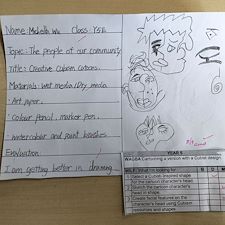 Name: Michelle Wu Class: Y5B
Topic: The people of our community
Title: Creative Cubism Cartoons.
Materials: wet media/Dry media
· Art paper.
· Colour pencil, marker pen.
· watercolour and paint brushes
Evaluation:
I am getting better in drawing.
YEAR 5
WAGBA: Cartooning a version with a Cubist design.
What I'm looking for:
Select a Cubism-inspired shape
for the cartoon character's head
Sketch the cartoon character's
head in shape.
Create facial features on the
character's head using Cubism